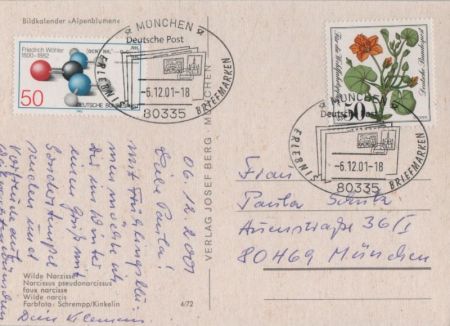 Bildkalender «Alpenblumen»
Friedrich Wöhler
1800-1882
50
DEUTSCHE BUNDESPOST
MÜNCHEN
Deutsche Post
ERLEBNIS
BRIEFMARKEN
-6.12.01-18
80335
50
Deutsche Bundespost
MÜNCHEN
Deutsche Post
ERLEBNIS
BRIEFMARKEN
-6.12.01-18
80335
06.12.2001
Liebe Paula!
Mit Frühlingsblu-
men möchte ich
Dir im Winter
einen Gruß mit
Sonderstempel
senden und
Vorfreude auf
Dein Klemens
VERLAG JOSEF BERG MÜNCHEN
Frau
Paula
Auenstraße 36/I
80469 München
Wilde Narzisse
Narcissus pseudonarcissus
faux narcisse
Wilde narcis
Farbfoto: Schrempp/Kinkelin
4/72